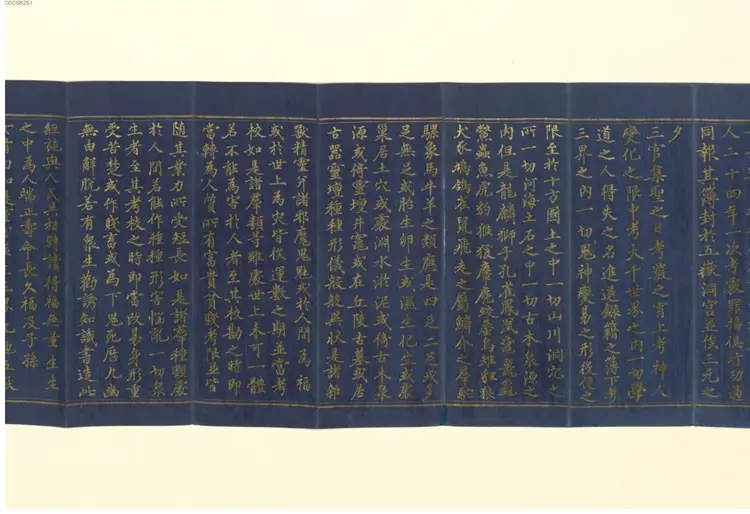 00068251
人二十四年一次考校罪福俱行功過
同報其簿封於五嶽洞宮並後三元之
夕
三官集聖之日考校之育上考神人
變化之限中考大千世界之内一切學
道之人得失之名進退録籍之簿下考
三界之内一切鬼神變易之形復位之
限至於十方國土之中一切山川洞穴之
所一切河海土石之中一切古木泉源之
内但是龍麟獅子孔雀鳳凰
鱉蟲魚虎豹猿猴麞鹿
大豕鳩鴿飛走之屬鱗介之
騾象馬牛羊之類應是四足二足或多
足無足或胎生卵生或濕生化生或巖
巢居土穴或處淵水淤泥或倚古木泉
源或倚靈壇井竈或在丘陵古墓或居
古器靈壇種種形儀般般異狀是諸雜
類精靈并諸邪魔鬼魅或於人間為福
或於世上為灾皆俟運數之期並當考
校如是諸羣類等雖處世上未可一體
名不能為害於人者至其校勘之時即
當轉為人質所有富貴貧賤考限並皆
隨其業力所受短長如是諸羣種類處
於人間若能作種種形害惱亂一切衆
生者至其考校之時即當改易身形重
受若楚或作賤畜或為下鬼死歷九幽
無由解脱若有衆生勸誘知識書造此
經施與
之中為人端正壽命長久福及子孫